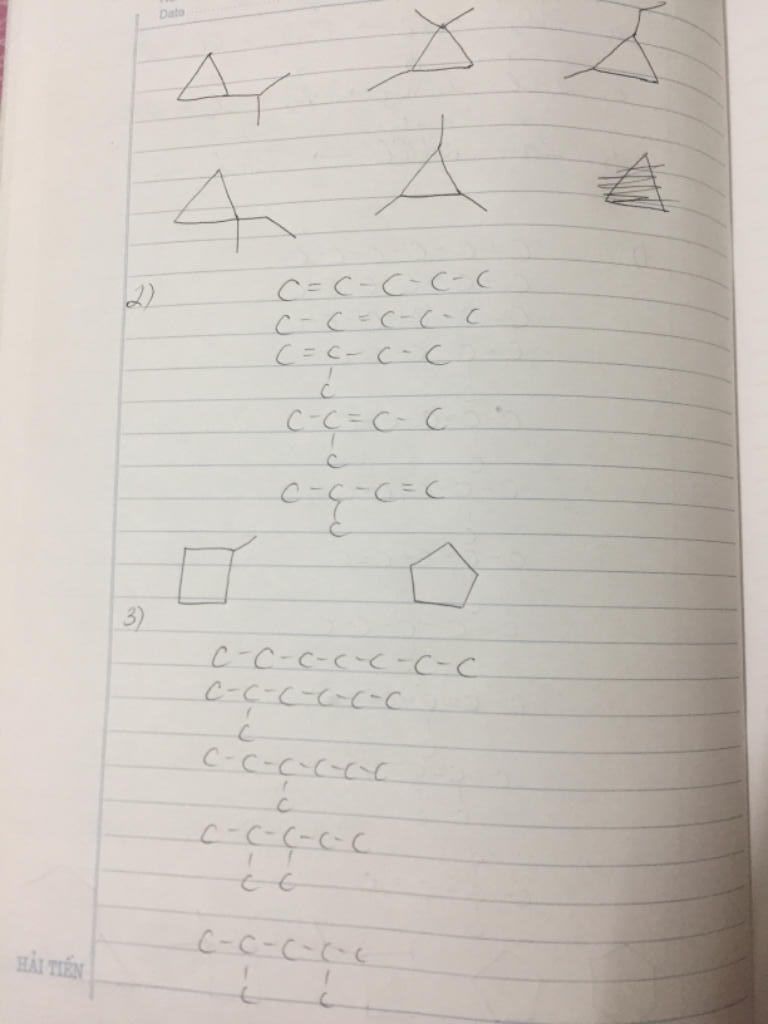 Date
2)
C=C-C-C-C
C-C=C-C-C
C=C-C-C
C
C-C=C-C
C
C-C-C=C
C
3)
C-C-C-C-C-C-C
C-C-C-C-C-C
C
C-C-C-C-C-C
C
C-C-C-C-C
C C
C-C-C-C-C
C C
HẢI TIẾN